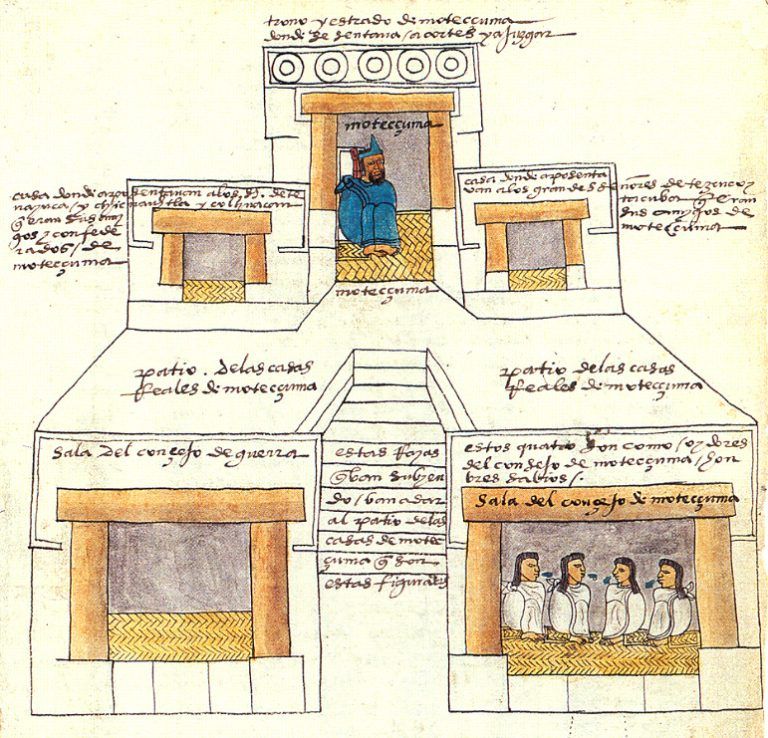 trono y estrado de motecçuma
donde se sentava / a cortes y a juzgar
motecçuma
motecçuma
casa donde aposentavan a los s.s. de te
nayuca / y chicnauhtla y colhuacan
q̃ eran sus ami
gos y confede
rados / de
motecçuma
casa donde aposenta
van a los grandes señores de tezcuco y
tacuba q̃ eran
sus amigos de
motecçuma
patio . de las casas
Reales de motecçuma
patio de las casas
Reales de motecçuma
Sala del conçejo de guerra
estas Rayas
q̃ ban subyen
do / ban a dar
al patio de las
casas de motec
çuma q̃ son
estas figuradas
estos quatro son como / oydores
del consejo de motecçuma / hon
bres sabios /.
Sala del conçejo de motecçuma